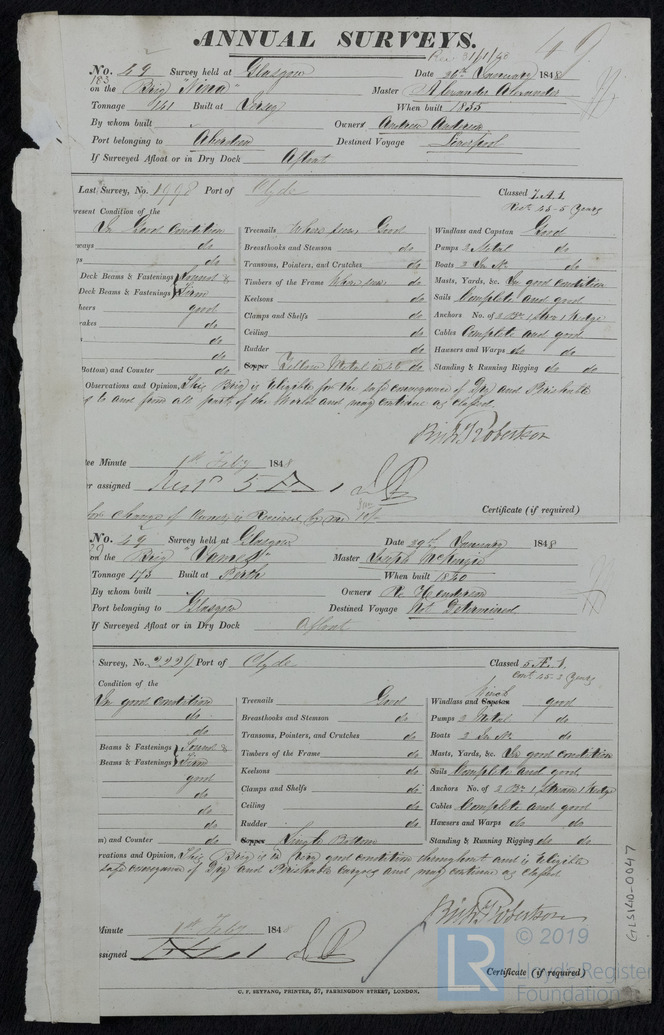 ANNUAL SURVEYS.
Rec 31/1/48 49
No. 49 Survey held at Glasgow Date 26th January 1848
183 on the Brig "Nina" Master Alexander Alexander
Tonnage 141 Built at Jersey When built 1835
By whom built Owners Andrew
Port belonging to Aberdeen Destined Voyage Liverpool
If Surveyed Afloat or in Dry Dock Afloat
Last Survey, No. 1998 Port of Clyde Classed
45-5 Years
resent Condition of the
In Good Condition Treenails Where seen Good Windlass and Capston Good
ways do Breasthooks and Stemson do Pumps 2 Metal do
s do Transoms, Pointers, and Crutches do Boats 2 In No. do
Deck Beams & Fastenings Sound & Timbers of the Frame Where seen do Masts, Yards, &c. In good condition
Deck Beams & Fastenings Firm Keelsons do Sails Complete and good
heers good Clamps and Shelfs do Anchors No. of 2 Br 1 Strm 1 Kedge
rakes do Ceiling do Cables Complete and good
do Rudder do Hausers and Warps do do
Bottom) and Counter do Copper Yellow Metal in 45 do Standing & Running Rigging do do
Observations and Opinion, This Brig is Eligible for the safe conveyance of Dry and Perishable
to and from all parts of the World and may continue as classed
Robertson
ee Minute 1st Feby 1848
er assigned 5 A 1
Certificate (if required)
change of Owners is Received
No. 49 Survey held at Glasgow Date 29th January 1848
on the Brig "Janet" Master Joseph McKenzie
Tonnage 173 Built at Perth When built 1840
By whom built Owners Henderson
Port belonging to Glasgow Destined Voyage Not Determined
If Surveyed Afloat or in Dry Dock Afloat
Survey, No. 2229 Port of Clyde Classed 5 Æ 1
Cont. 45-2 Years
Condition of the
In good condition Treenails Good Windlass and Capston Winch good
do Breasthooks and Stemson do Pumps 2 Metal do
do Transoms, Pointers, and Crutches do Boats 2 In No. do
Beams & Fastenings Sound & Timbers of the Frame do Masts, Yards, &c. In good condition
Beams & Fastenings Firm Keelsons do Sails Complete and good
good Clamps and Shelfs do Anchors No. of 2 Br 1 Stream 1 Kedge
do Ceiling do Cables Complete and good
do Rudder do Hawsers and Warps do do
m) and Counter do Copper Single Bottom Standing & Running Rigging do do
rvations and Opinion, This Brig is in very good condition throughout and is Eligible
safe conveyance of Dry and Perishable cargoes and may continue as classed
Robertson
Minute 1st Feby 184
ssigned Æ 1
Certificate (if required)
U. F. SEYFANG, PRINTER, 57, FARRINGDON STREET, LONDON.
GLS140-0047
LR © 2019
Lloyd's Register
Foundation